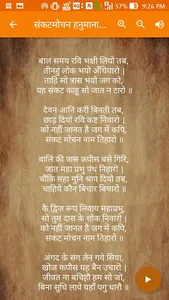 9:26 PM
संकटमोचन हनुमाना...
बाल समय रवि भक्षी लियो तब,
तीनहुं लोक भयो अँधियारो
ताहि सो त्रास भयो जग को,
यह संकट काहु सो जात न टारो ॥
देवन आनि करी बिनती तब,
छाड़ दियो रवि कष्ट निवारो
को नहीं जानत है जग में कपि,
संकट मोचन नाम तिहारो ॥
बालि की त्रास कपीस बसे गिरि,
जात महा प्रभु पंथ निहारो
चौंकि महा मुनि श्राप दियो तब,
चाहिये कौन बिचार बिचारो ॥
के द्विज रूप लिवाय महाप्रभु,
सो तुम दास के शोक निवारो
को नहीं जानत है जग में कपि,
संकट मोचन नाम तिहारो ॥
अंगद के संग लेन गये सिया,
खोज कपीस यह बैन उचारो
जीवत ना बचिहौ हम सो जो,
बिना सुधि लाये यहाँ पगु धारो ॥